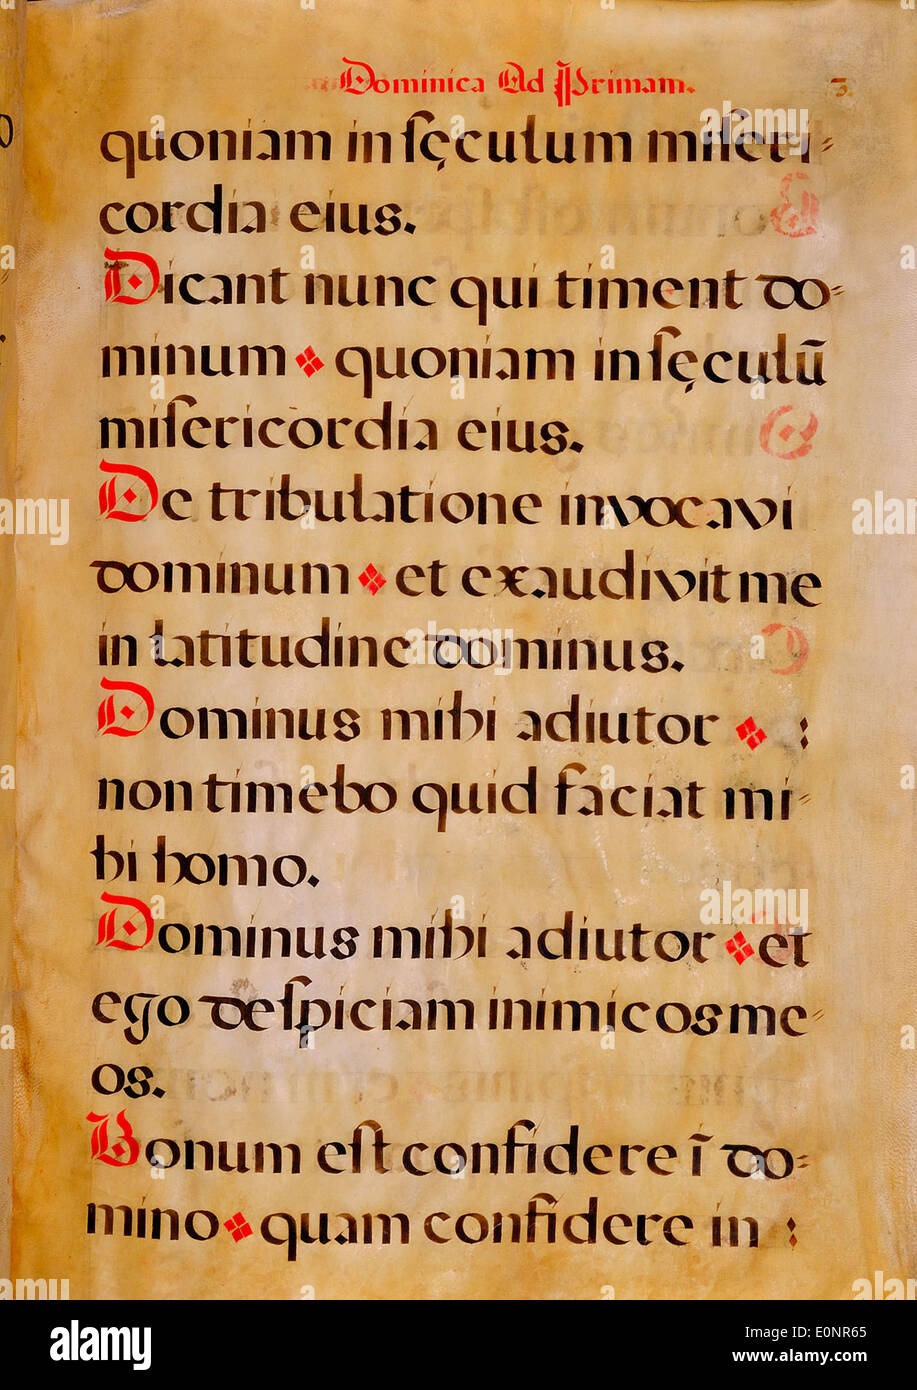 Dominica Ad Primam. 3.
quoniam in sęculum miseri-
cordia eius.
Dicant nunc qui timent do-
minum ❖ quoniam in sęculū
misericordia eius.
De tribulatione invocavi
dominum ❖ et exaudivit me
in latitudine dominus.
Dominus mihi adiutor ❖ :
non timebo quid faciat mi-
hi homo.
Dominus mihi adiutor ❖ et
ego despiciam inimicos me-
os.
Bonum est confidere ī do-
mino ❖ quam confidere in :
alamy
Image ID: E0NR65
www.alamy.com